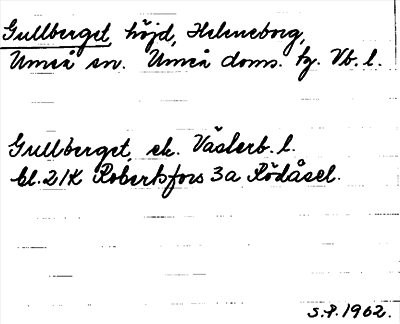 Gullberget, höjd, Heleneborg,
Umeå sn. Umeå doms. hg. Vb. l.
Gullberget, ek. Västerb. l.
bl. 21K Robertsfors 3a Rödåsel.
S.P. 1962.